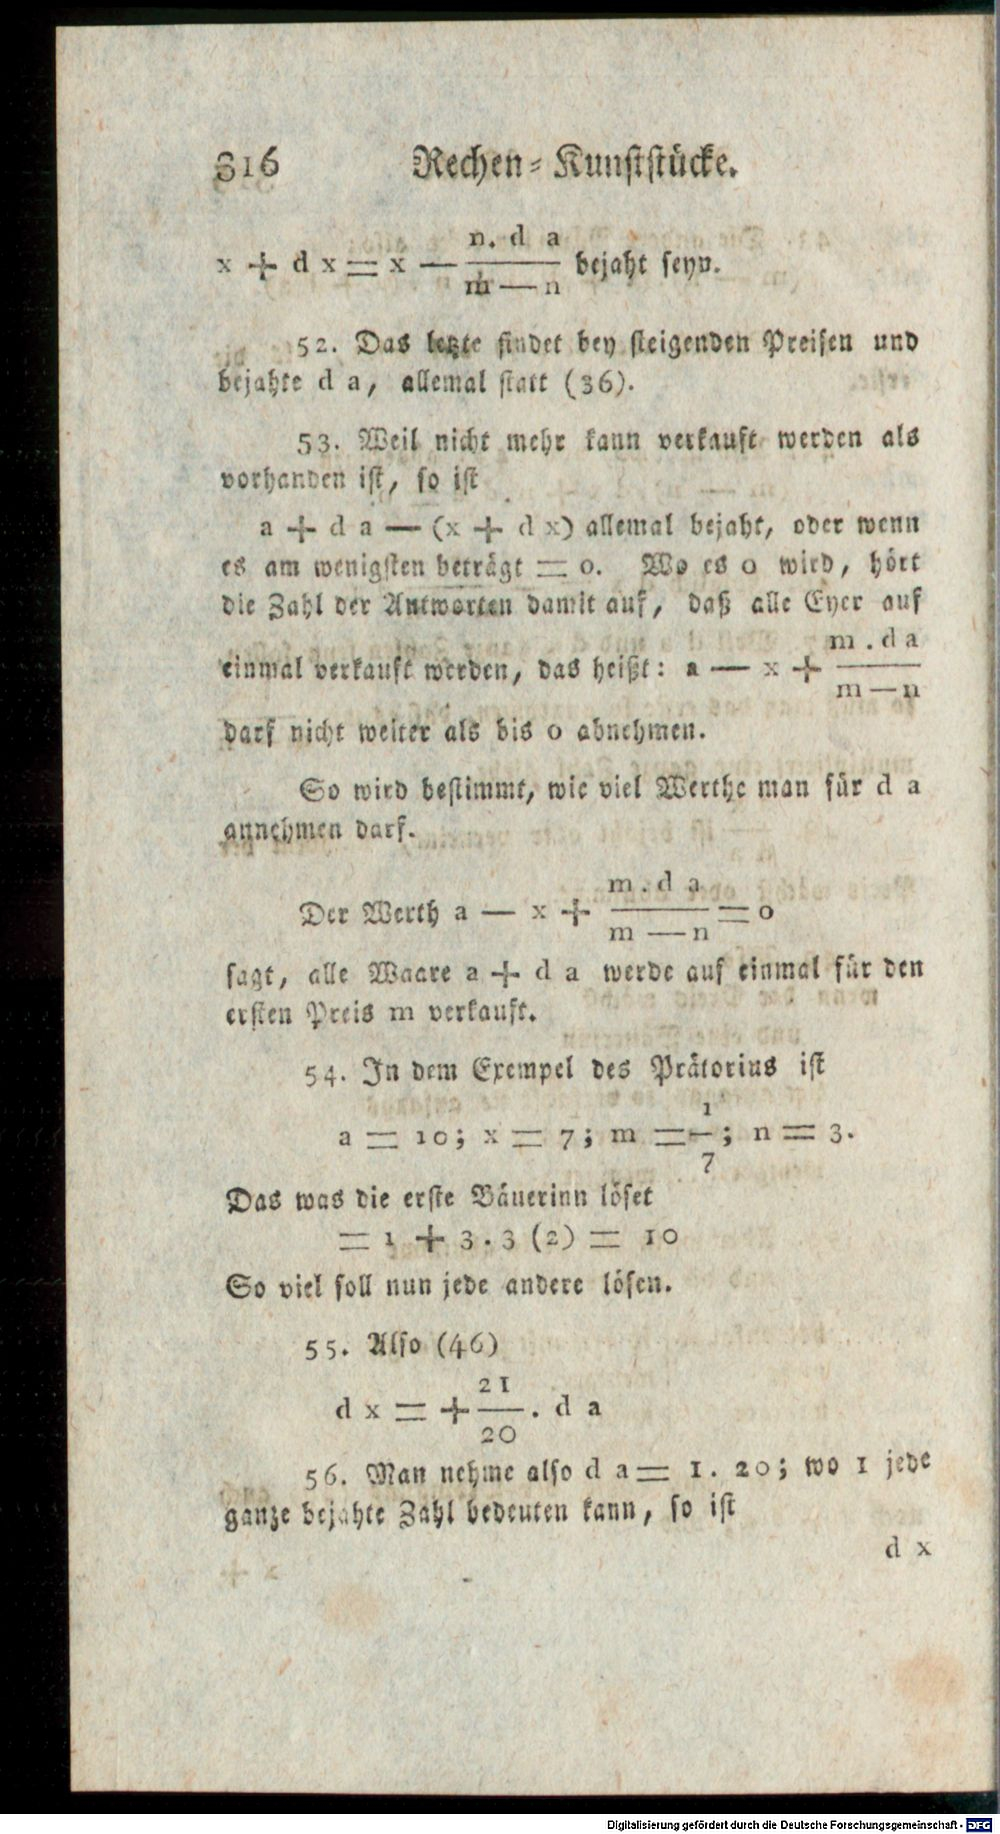 316 Rechen-Kunststücke.
x + d x = x — n. d a / m — n bejaht seyn.
52. Das letzte findet bey steigenden Preisen und
bejahte d a, allemal statt (36).
53. Weil nicht mehr kann verkauft werden als
vorhanden ist, so ist
a + d a — (x + d x) allemal bejaht, oder wenn
es am wenigsten beträgt = 0. Wo es 0 wird, hört
die Zahl der Antworten damit auf, daß alle Eyer auf
einmal verkauft werden, das heißt: a — x + m . d a / m — n
darf nicht weiter als bis 0 abnehmen.
So wird bestimmt, wie viel Werthe man für d a
annehmen darf.
Der Werth a — x + m . d a / m — n = 0
sagt, alle Waare a + d a werde auf einmal für den
ersten Preis m verkauft.
54. In dem Exempel des Prätorius ist
a = 10; x = 7; m = 1/7; n = 3.
Das was die erste Bäuerinn löset
= 1 + 3 . 3 (2) = 10
So viel soll nun jede andere lösen.
55. Also (46)
d x = + 21/20 . d a
56. Man nehme also d a = 1. 20; wo 1 jede
ganze bejahte Zahl bedeuten kann, so ist
d x
Digitalisierung gefördert durch die Deutsche Forschungsgemeinschaft - DFG